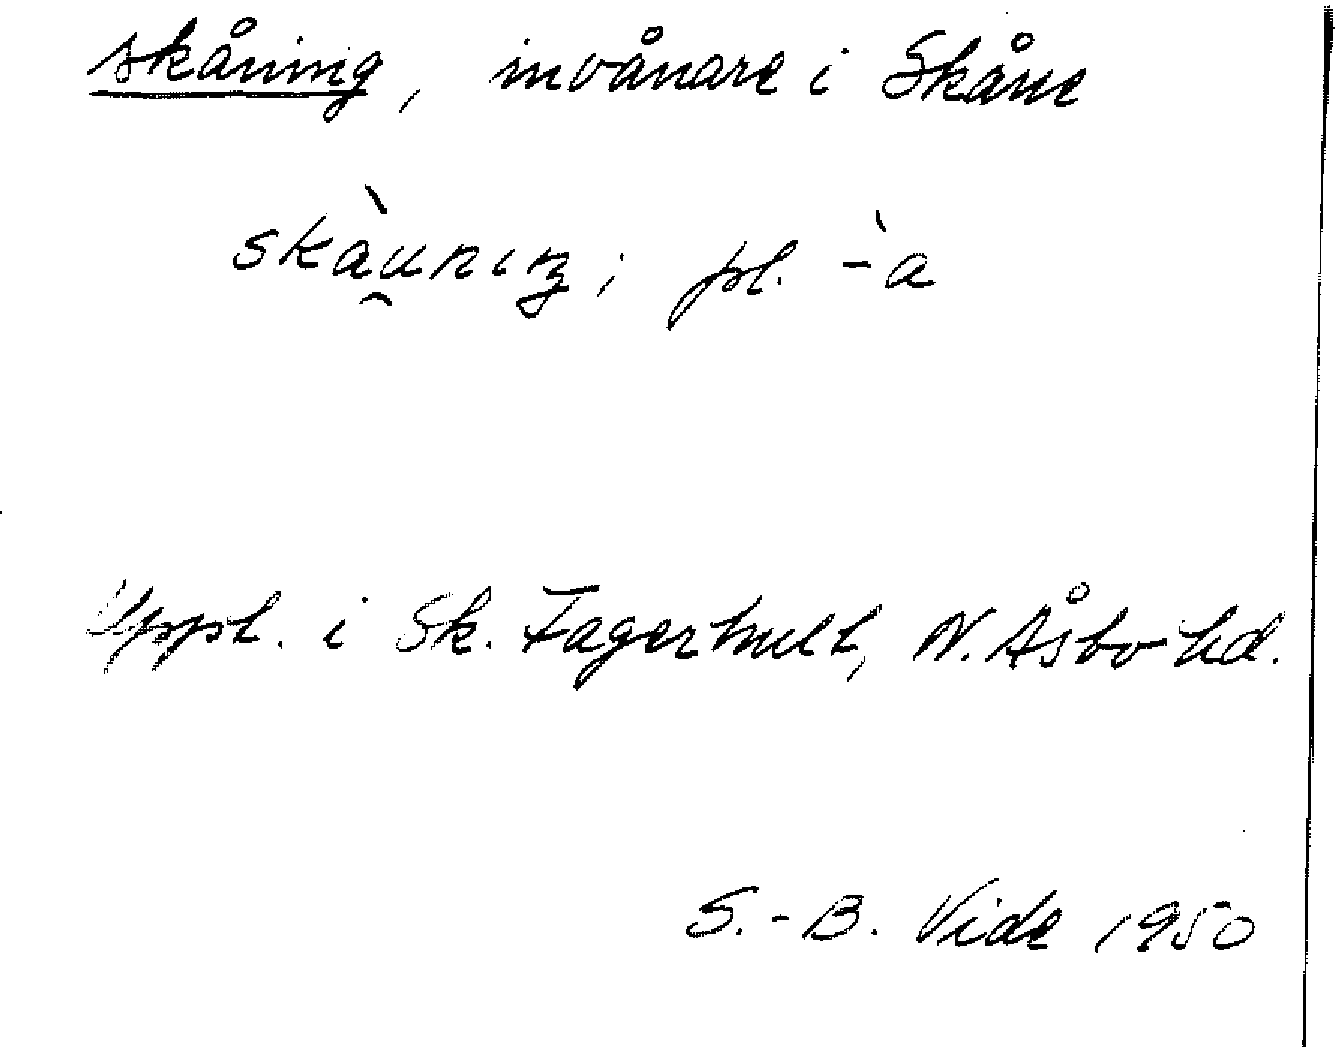 skåning, invånare i Skåne
skàu̯nıŋ; pl. -̀a
Uppt. i Sk. Fagerhult, N. Åsbo hd.
S.-B. Vide 1950